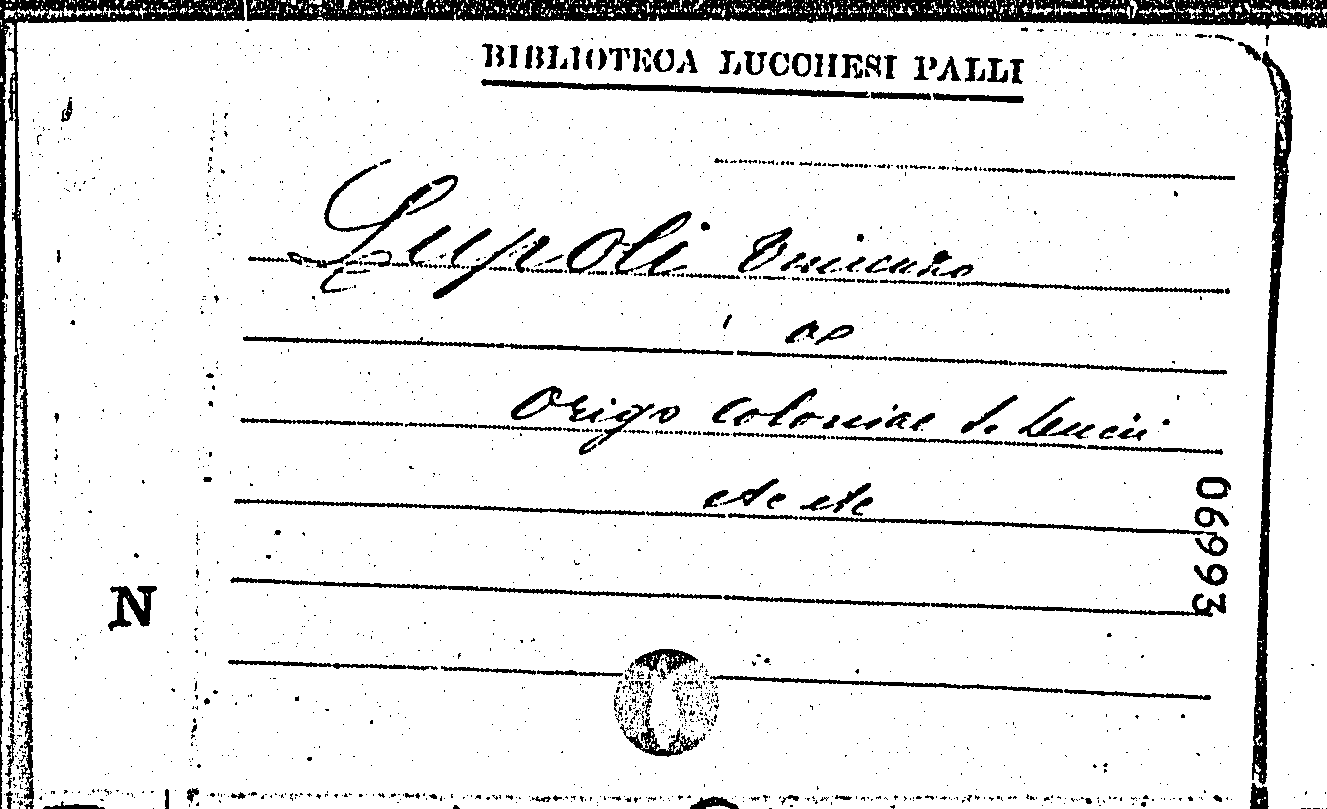 BIBLIOTECA LUCCHESI PALLI
Lupoli
Origo Coloniae S. Leucii
etc etc
N
06993